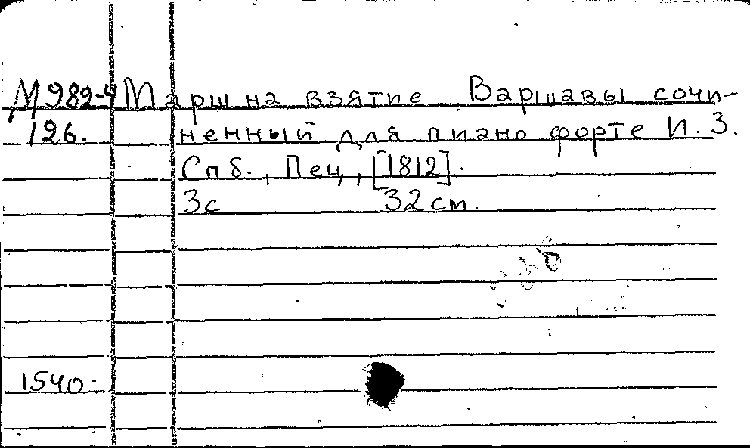 М982-4 Марш на взятие Варшавы сочи-
126. ненный для пиано форте И. З.
Спб., Пец, [1812].
3с 32 см.
1540-